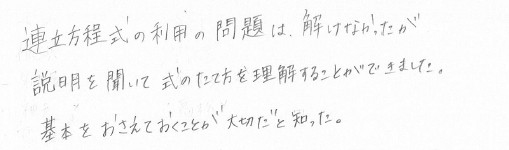 連立方程式の利用の問題は、解けなかったが
説明を聞いて式のたて方を理解することができました。
基本をおさえておくことが大切だと知った。